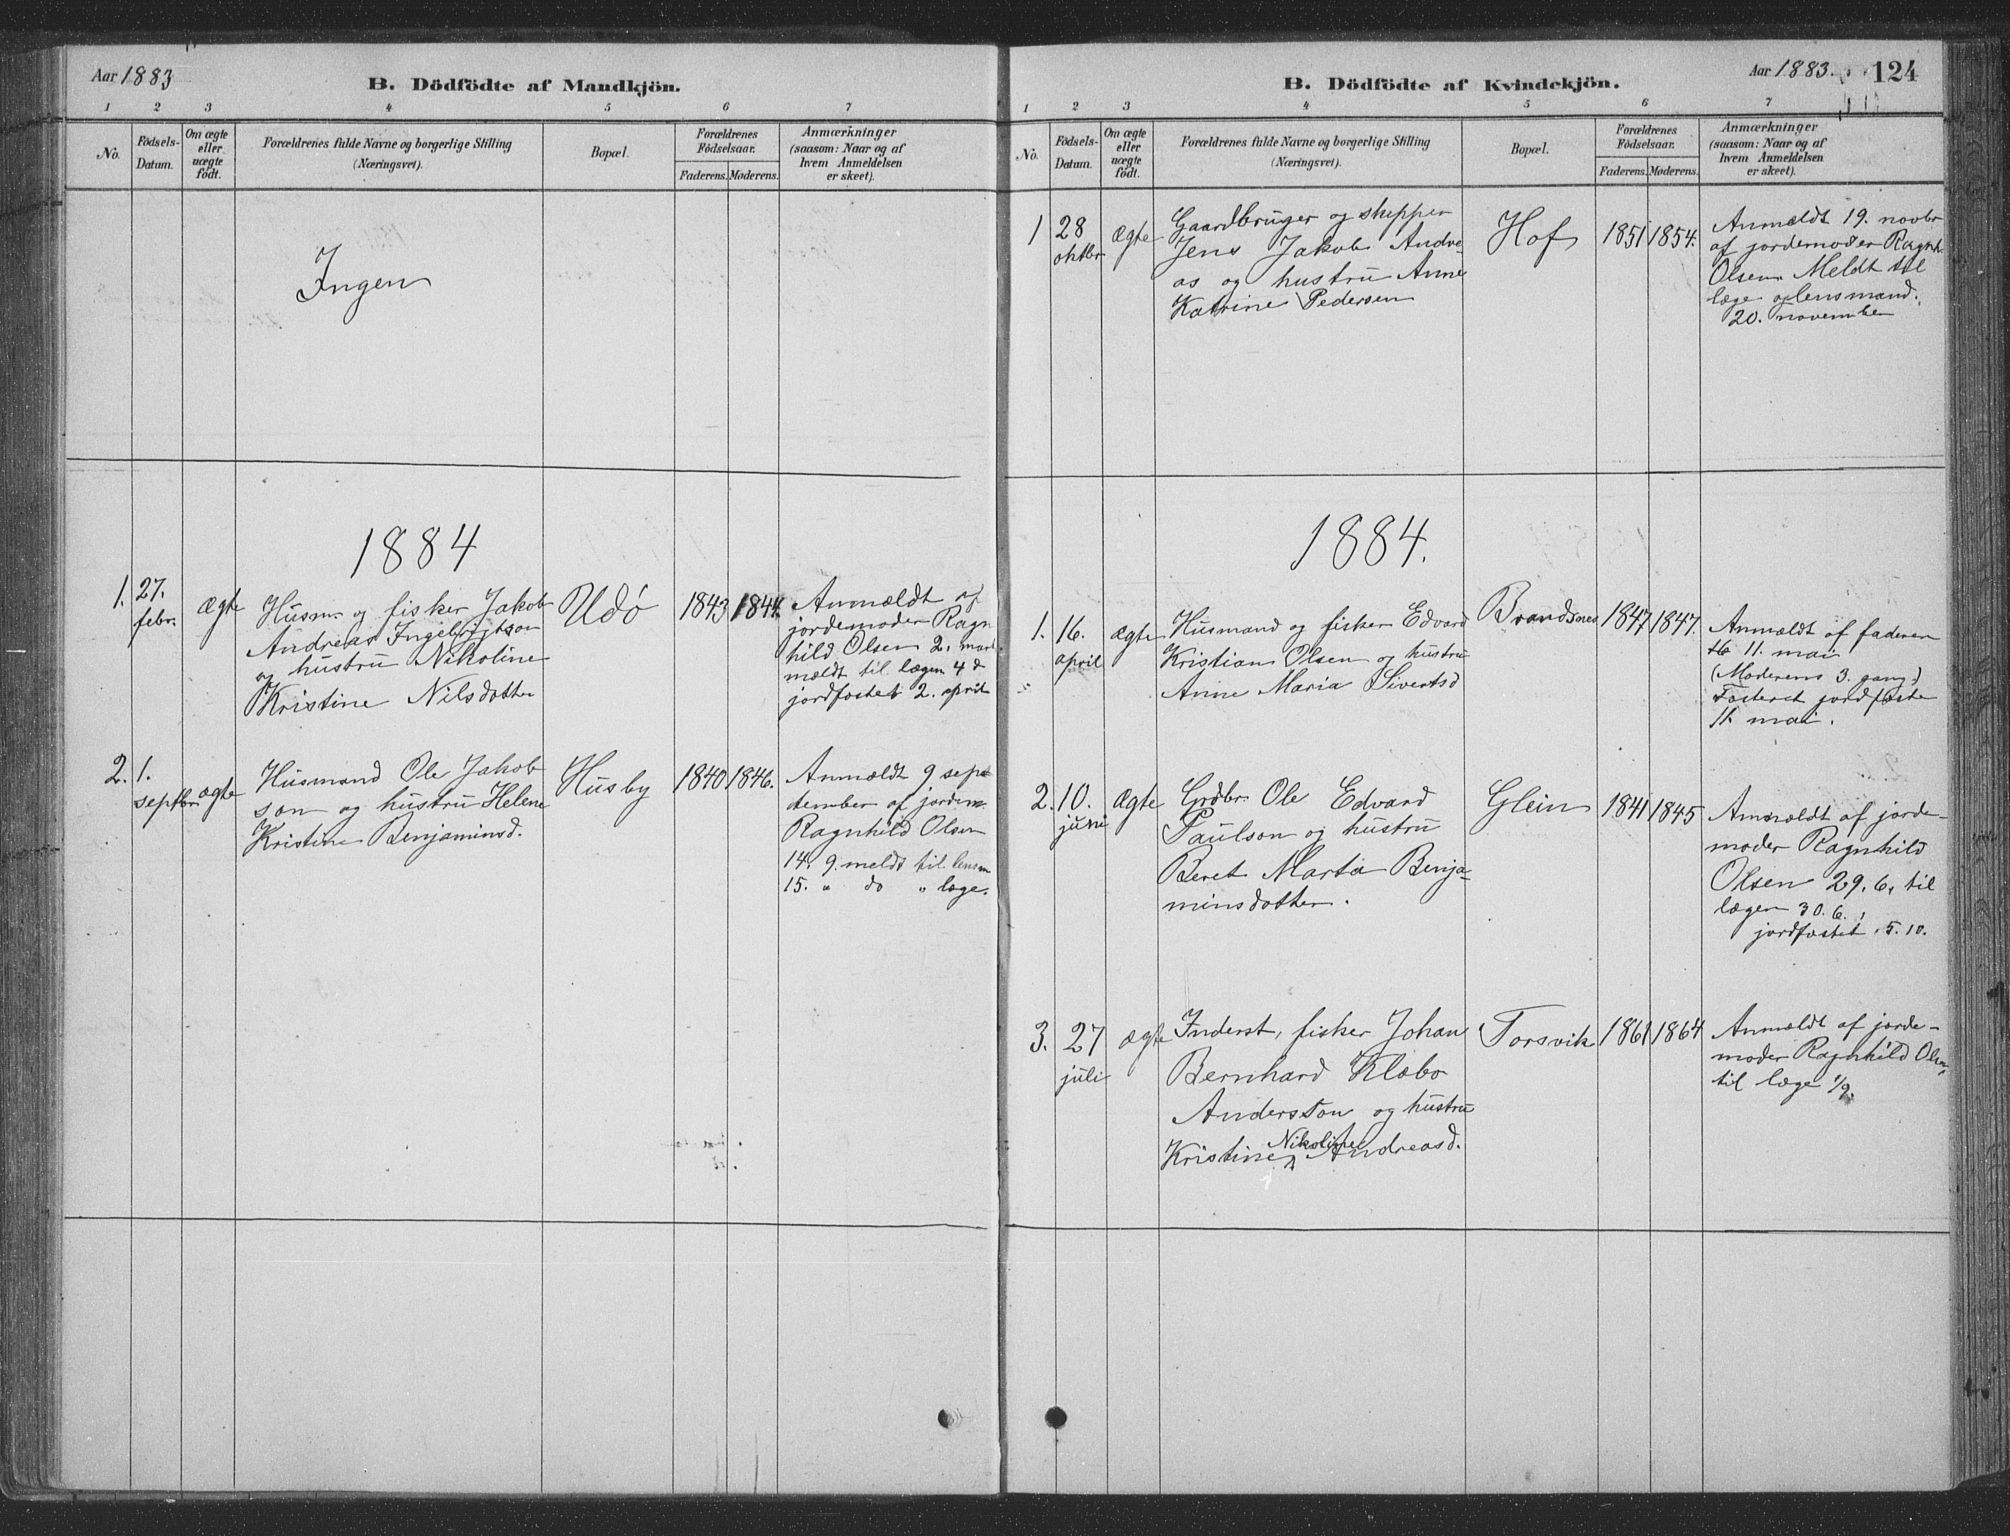 Aar 1883
B. Dödfödte af Mandkjön.
1 2 3 4 5 6 7
No.
Födsels-
Datum.
Om ægte
eller
uægte
födt.
Forældrenes fulde Navne og borgerlige Stilling
(Næringsvei).
Bopæl.
Forældrenes
Födselsaar.
Faderens. Moderens.
Anmærkninger
(saasom: Naar og af
hvem Anmeldelsen
er skeet).
Ingen
1884
1. 27. febr. ægte
Husm. og fisker Jakob
Andreas Ingebrigtson
og hustru Nikoline
Kristine Nilsdotter
Udö
1843 1844.
Anmældt af
jordemoder Ragn
hild Olsen 2. mar
mældt til lægen 4 d
jordfæstet 2. april
2. 1. septbr. ægte
Husmand Ole Jakob
son og hustru Helene
Kristine Benjaminsd.
Husby
1840 1846.
Anmældt 9 sep
tember af jordm.
Ragnhild Olsen
14. 9. meldt til lensm
15. " do " læge.
Aar 1883. 124
B. Dödfödte af Kvindekjön.
1 2 3 4 5 6 7
No.
Födsels-
Datum.
Om ægte
eller
uægte
födt.
Forældrenes fulde Navne og borgerlige Stilling
(Næringsvei).
Bopæl.
Forældrenes
Födselsaar.
Faderens. Moderens.
Anmærkninger
(saasom: Naar og af
hvem Anmeldelsen
er skeet).
1 28 oktbr ægte
Gaardbruger og skipper
Jens Jakob Andre-
as og hustru Anne
Katrine Pedersen
Hof
1851 1854.
Anmældt 19. novbr
af jordemoder Ragnh
Olsen Meldt til
læge og lensmand.
20. november
1884.
1. 16. april ægte
Husmand og fisker Edvard
Kristian Olsen og hustru
Anne Maria Sivertsd
Brandsnes
1847 1847.
Anmældt af faderen
11. mai
(Moderens 3. gang)
Fosteret jordfæste
11. mai.
2. 10. juni ægte
Grdbr. Ole Edvard
Paulson og hustru
Beret Marta Benja-
minsdotter.
Glein
1841 1845
Anmældt af jorde-
moder Ragnhild
Olsen 29. 6, til
lægen 30. 6.,
jordfæstet. 5. 10.
3. 27 juli ægte
Inderst, fisker Johan
Bernhard Klæbo
Anderston og hustru
Nikoline
Kristine Andreasd.
Torsvik
1861 1864
Anmældt af jorde-
moder Ragnhild Olsen,
til læge 1/9.